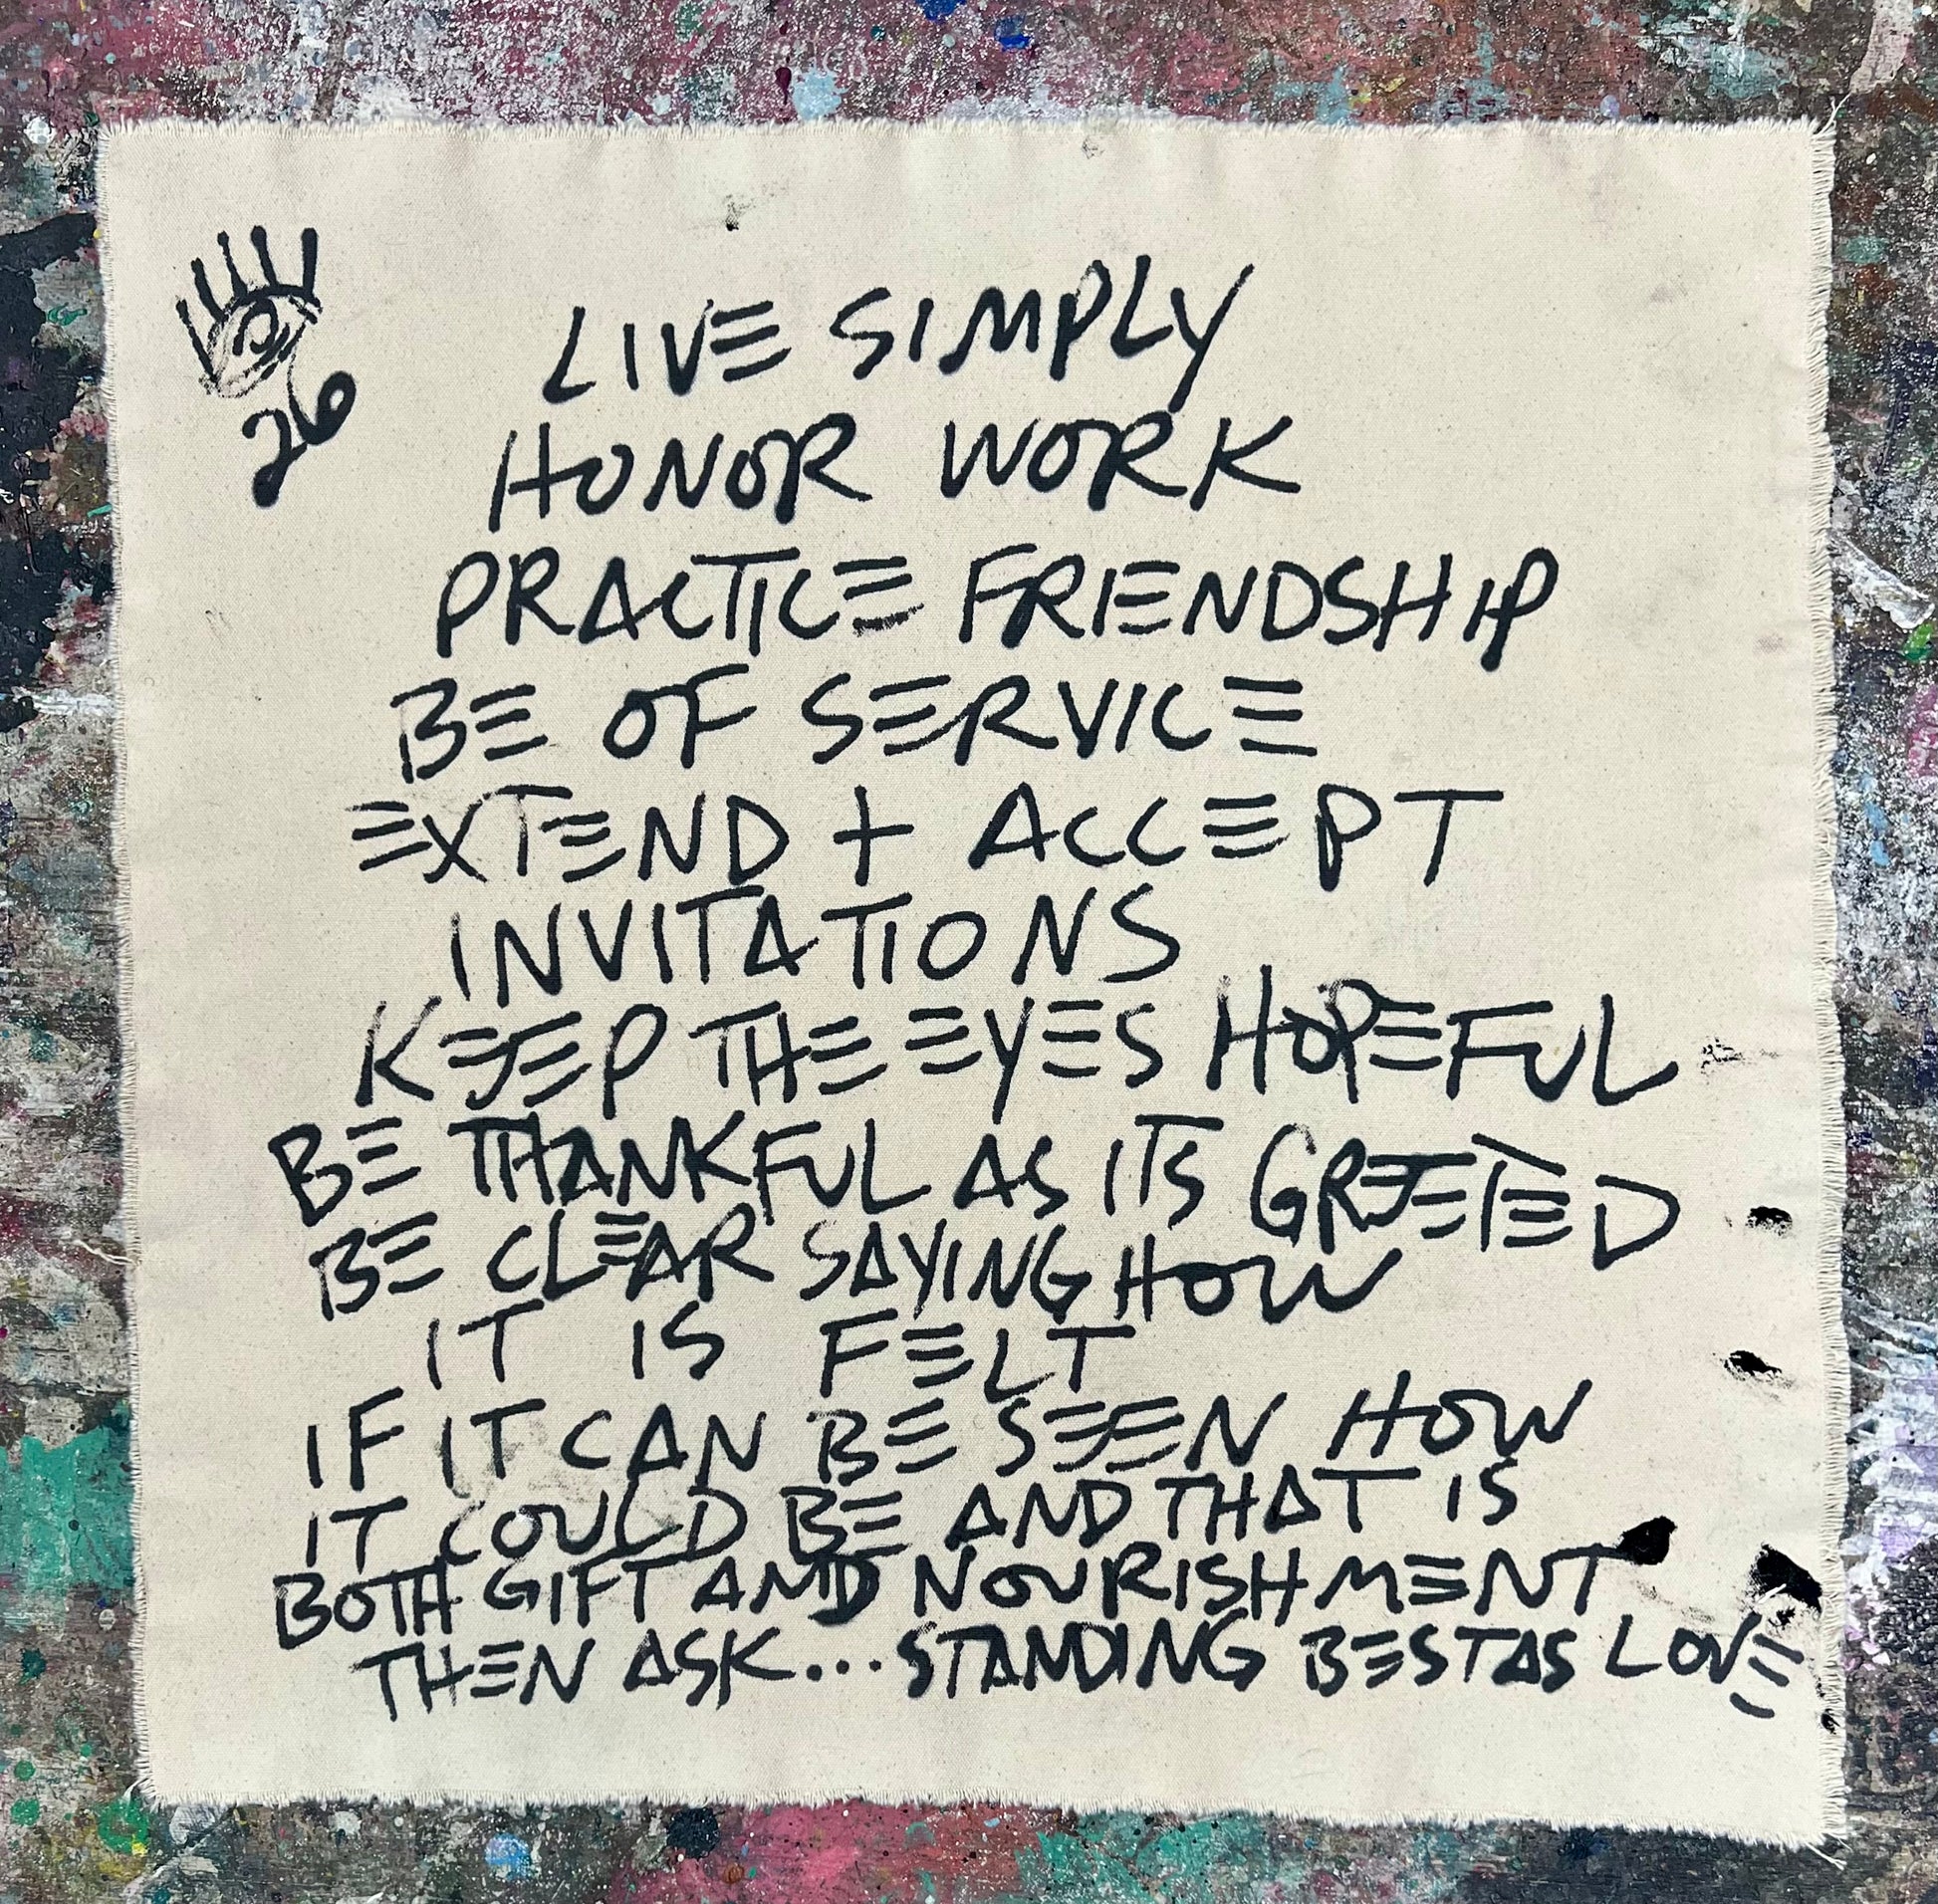 26
LIVE SIMPLY
HONOR WORK
PRACTICE FRIENDSHIP
BE OF SERVICE
EXTEND + ACCEPT
INVITATIONS
KEEP THE EYES HOPEFUL
BE THANKFUL AS ITS GREETED
BE CLEAR SAYING HOW
IT IS FELT
IF IT CAN BE SEEN HOW
IT COULD BE AND THAT IS
BOTH GIFT AND NOURISHMENT
THEN ASK...STANDING BEST AS LOVE